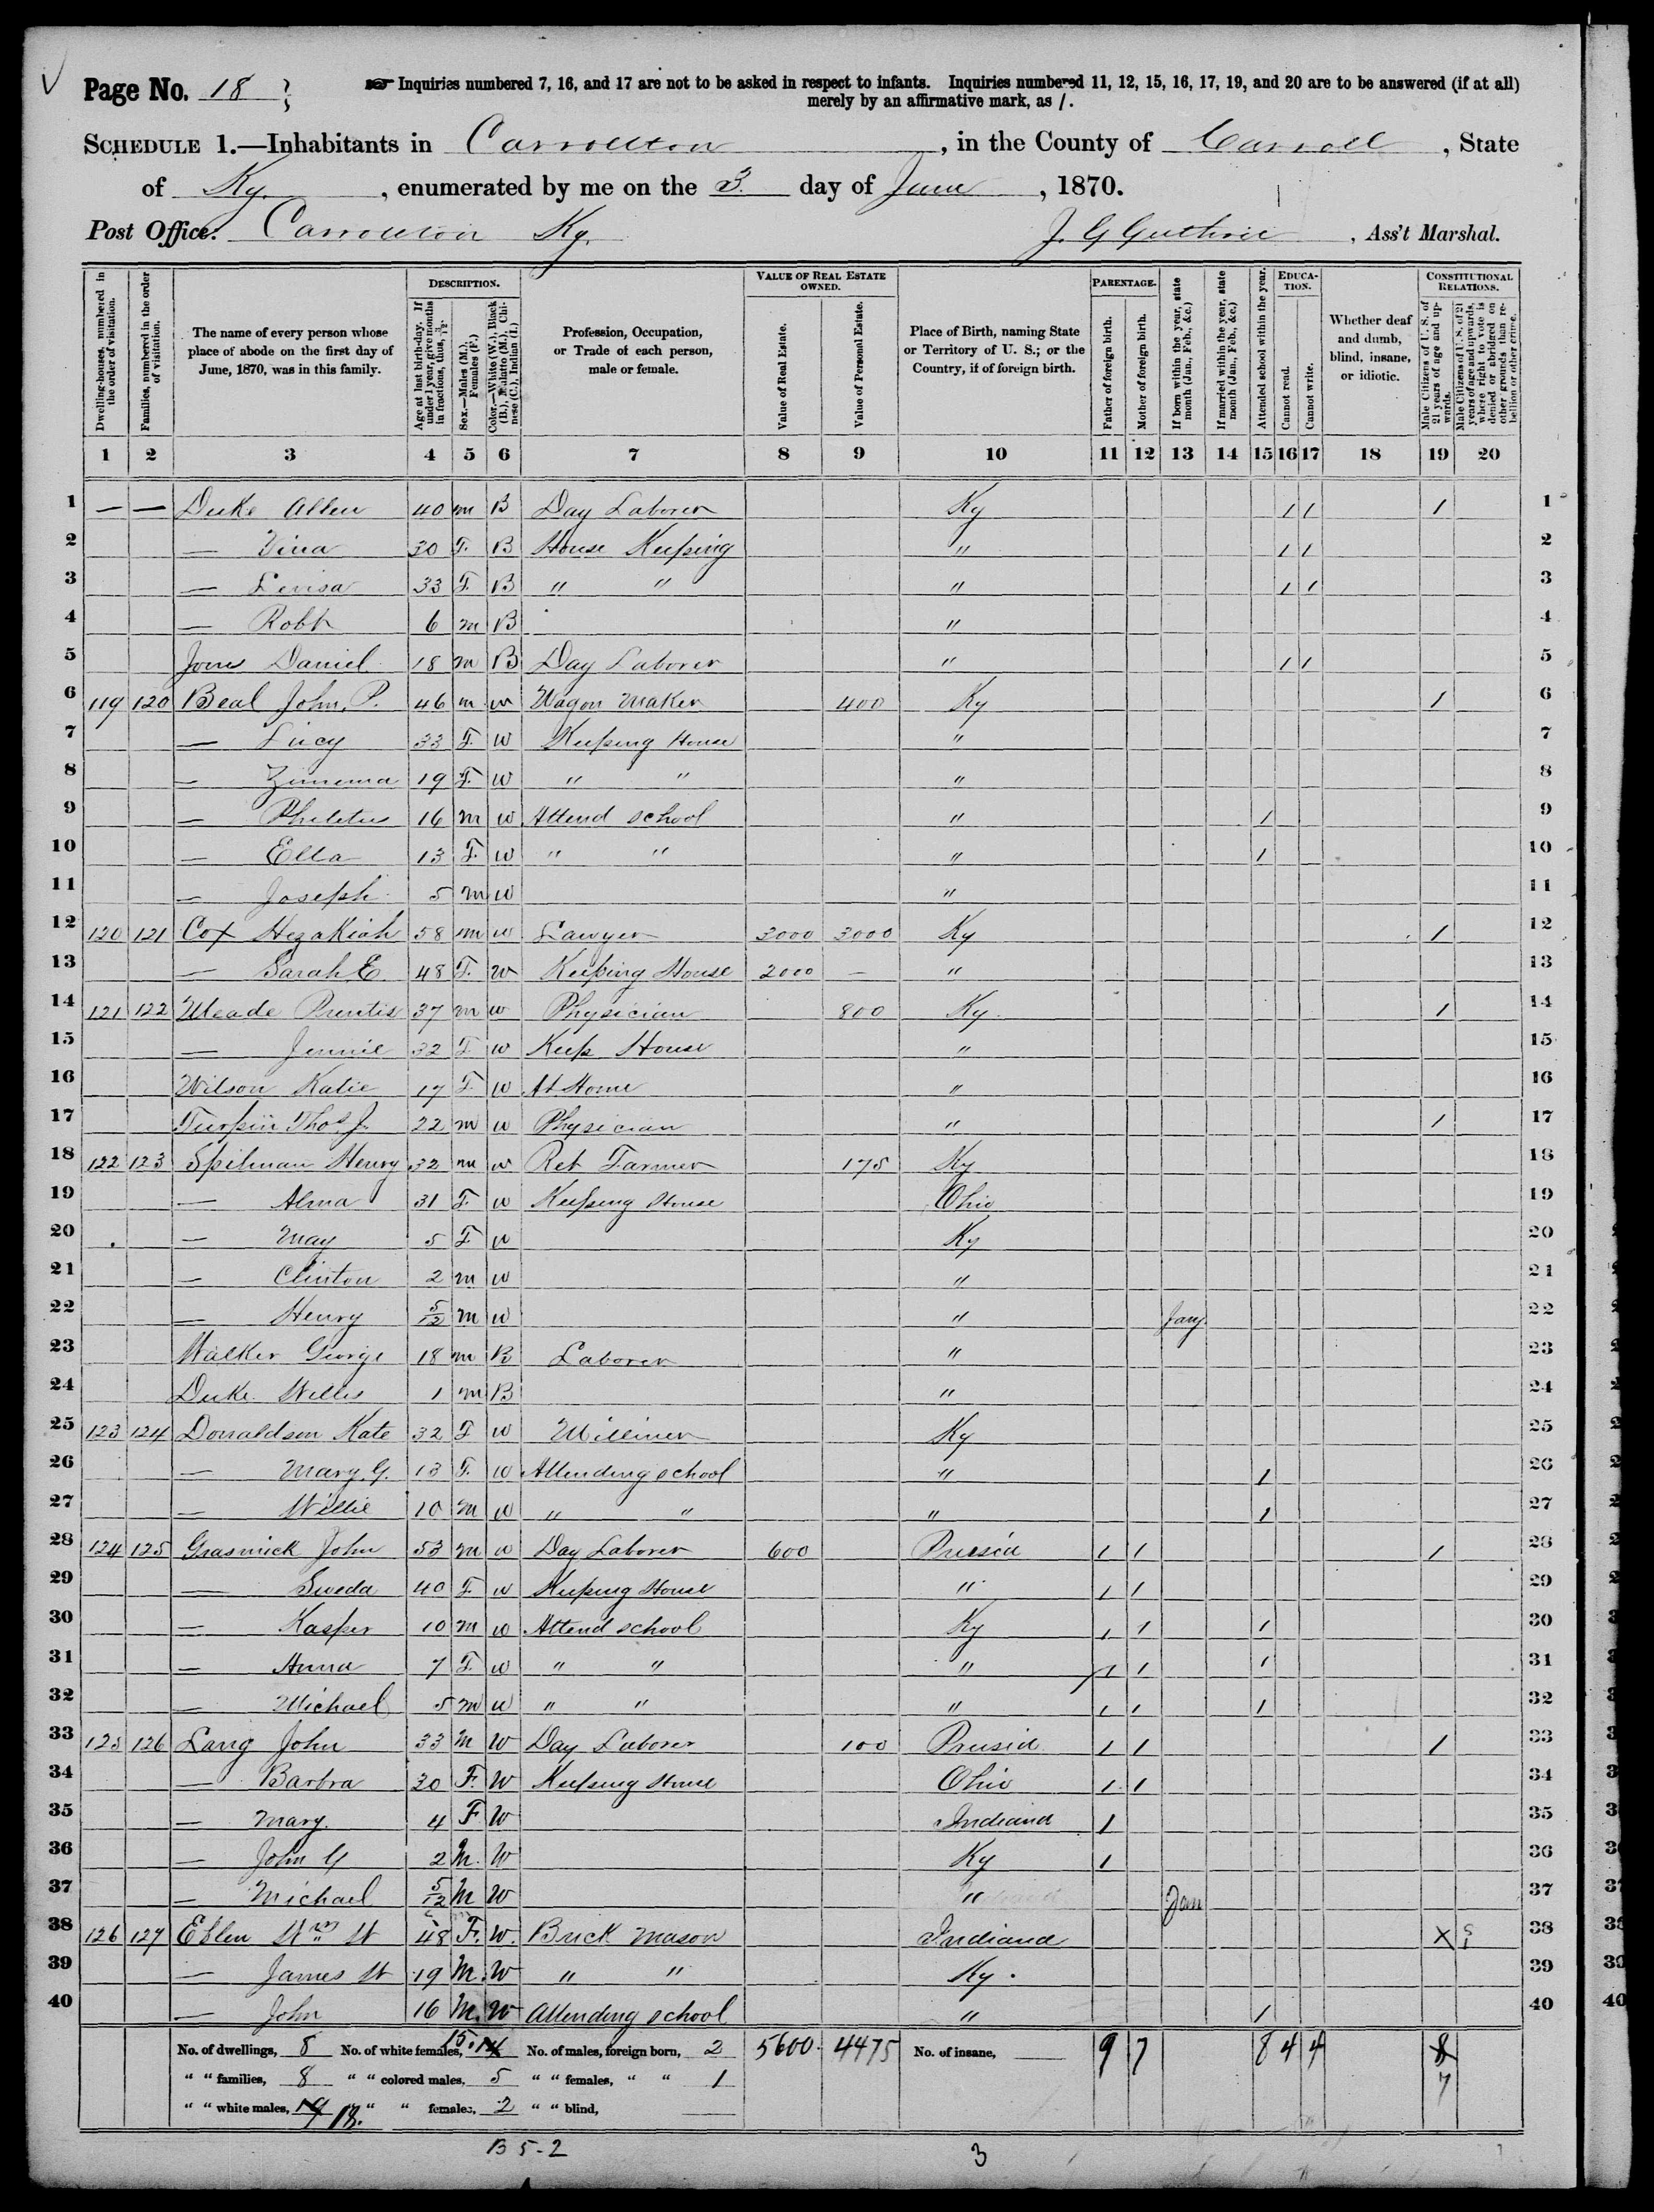 Page No. 18
☞ Inquiries numbered 7, 16, and 17 are not to be asked in respect to infants. Inquiries numbered 11, 12, 15, 16, 17, 19, and 20 are to be answered (if at all)
merely by an affirmative mark, as /.
SCHEDULE 1.—Inhabitants in Carrollton, in the County of Carroll, State
of Ky., enumerated by me on the 3 day of June, 1870.
Post Office: Carrollton Ky. J. G Guthrie, Ass't Marshal.
DESCRIPTION. VALUE OF REAL ESTATE OWNED. PARENTAGE. EDUCATION. CONSTITUTIONAL RELATIONS.
Dwelling-houses, numbered in the order of visitation.
Families, numbered in the order of visitation.
The name of every person whose place of abode on the first day of June, 1870, was in this family.
Age at last birth-day. If under 1 year, give months in fractions, thus, 3/12.
Sex.—Males (M.), Females (F.)
Color.—White (W.), Black (B.), Mulatto (M.), Chinese (C.), Indian (I.)
Profession, Occupation, or Trade of each person, male or female.
Value of Real Estate.
Value of Personal Estate.
Place of Birth, naming State or Territory of U. S.; or the Country, if of foreign birth.
Father of foreign birth.
Mother of foreign birth.
If born within the year, state month (Jan., Feb., &c.)
If married within the year, state month (Jan., Feb., &c.)
Attended school within the year.
Cannot read.
Cannot write.
Whether deaf and dumb, blind, insane, or idiotic.
Male Citizens of U. S. of 21 years of age and upwards.
Male Citizens of U. S. of 21 years of age and upwards, where right to vote is denied or abridged on other grounds than rebellion or other crime.
1 2 3 4 5 6 7 8 9 10 11 12 13 14 15 16 17 18 19 20
1 — — Duke Allen 40 m B Day Laborer Ky / / / 1
2 — Vina 30 F. B House Keeping " / / 2
3 — Levisa 33 F. B " " " / / 3
4 — Robt 6 m B " 4
5 Jones Daniel 18 m B Day Laborer " / / 5
6 119 120 Beal John. P. 46 m w Wagon Maker 400 Ky / 6
7 — Lucy 33 F. w Keeping House " 7
8 — 19 F. w " " " 8
9 — Philetus 16 m w Attend school " / 9
10 — Ella 13 F. w " " " / 10
11 — Joseph 5 m w " 11
12 120 121 Cox Hezakiah 58 m w Lawyer 3000 3000 Ky / 12
13 — Sarah E. 48 F. w Keeping House 2000 — " 13
14 121 122 Meade Prentis 37 m w Physician 800 Ky. / 14
15 — Jennie 32 F w Keep House " 15
16 Wilson Katie 17 F. w At Home " 16
17 Turpin Thos. J. 22 m w Physician " / 17
18 122 123 Spilman Henry 32 m w Ret Farmer 175 Ky 18
19 — Alma 31 F. w Keeping House Ohio 19
20 — May 5 F. w Ky 20
21 — Clinton 2 m w " 21
22 — Henry 5/12 m w " Jany. 22
23 Walker George 18 m B Laborer " 23
24 Duke Willis 1 m B " 24
25 123 124 Donaldson Kate 32 F w Milliner Ky 25
26 — Mary G. 13 F. w Attending school " / 26
27 — Willie 10 m w " " " / 27
28 124 125 Grasmick John 53 m w Day Laborer 600 Prusia / / / 28
29 — Sweda 40 F. w Keeping House " / / 29
30 — Kasper 10 m w Attend school Ky / / / 30
31 — Anna 7 F. w " " " / / / 31
32 — Michael 5 m w " " " / / / 32
33 125 126 Lang John 33 m W Day Laborer 100 Prusia / / / 33
34 — Barbra 30 F. W Keeping House Ohio / / 34
35 — Mary. 4 F W Indiana / 35
36 — John G 2 M. W Ky / 36
37 — Michael 5/12 M W " Jan 37
38 126 127 Eblen Wm H 48 F. W. Brick Mason Indiana X 38
39 — James H 19 M. W " " Ky. 39
40 — John 16 M. W Attending school " / 40
No. of dwellings, 8 No. of white females, 15. 14 No. of males, foreign born, 2 5600. 4475 No. of insane, — 9 7 8 4 4 8
" " families, 8 " " colored males, 5 " " females, " " 1 7
" " white males, 19 18. " " females, 2 " " blind, —
B 5-2 3